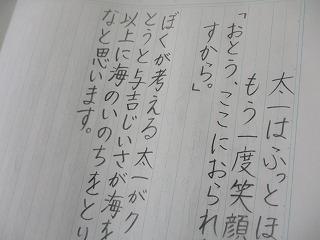 太一はふっとほ
もう一度笑顔
「おとう、ここにおられ
すから。」
ぼくが考える太一がク
とうと与吉じいさが海を
以上に海のいのちをとり
なと思います。